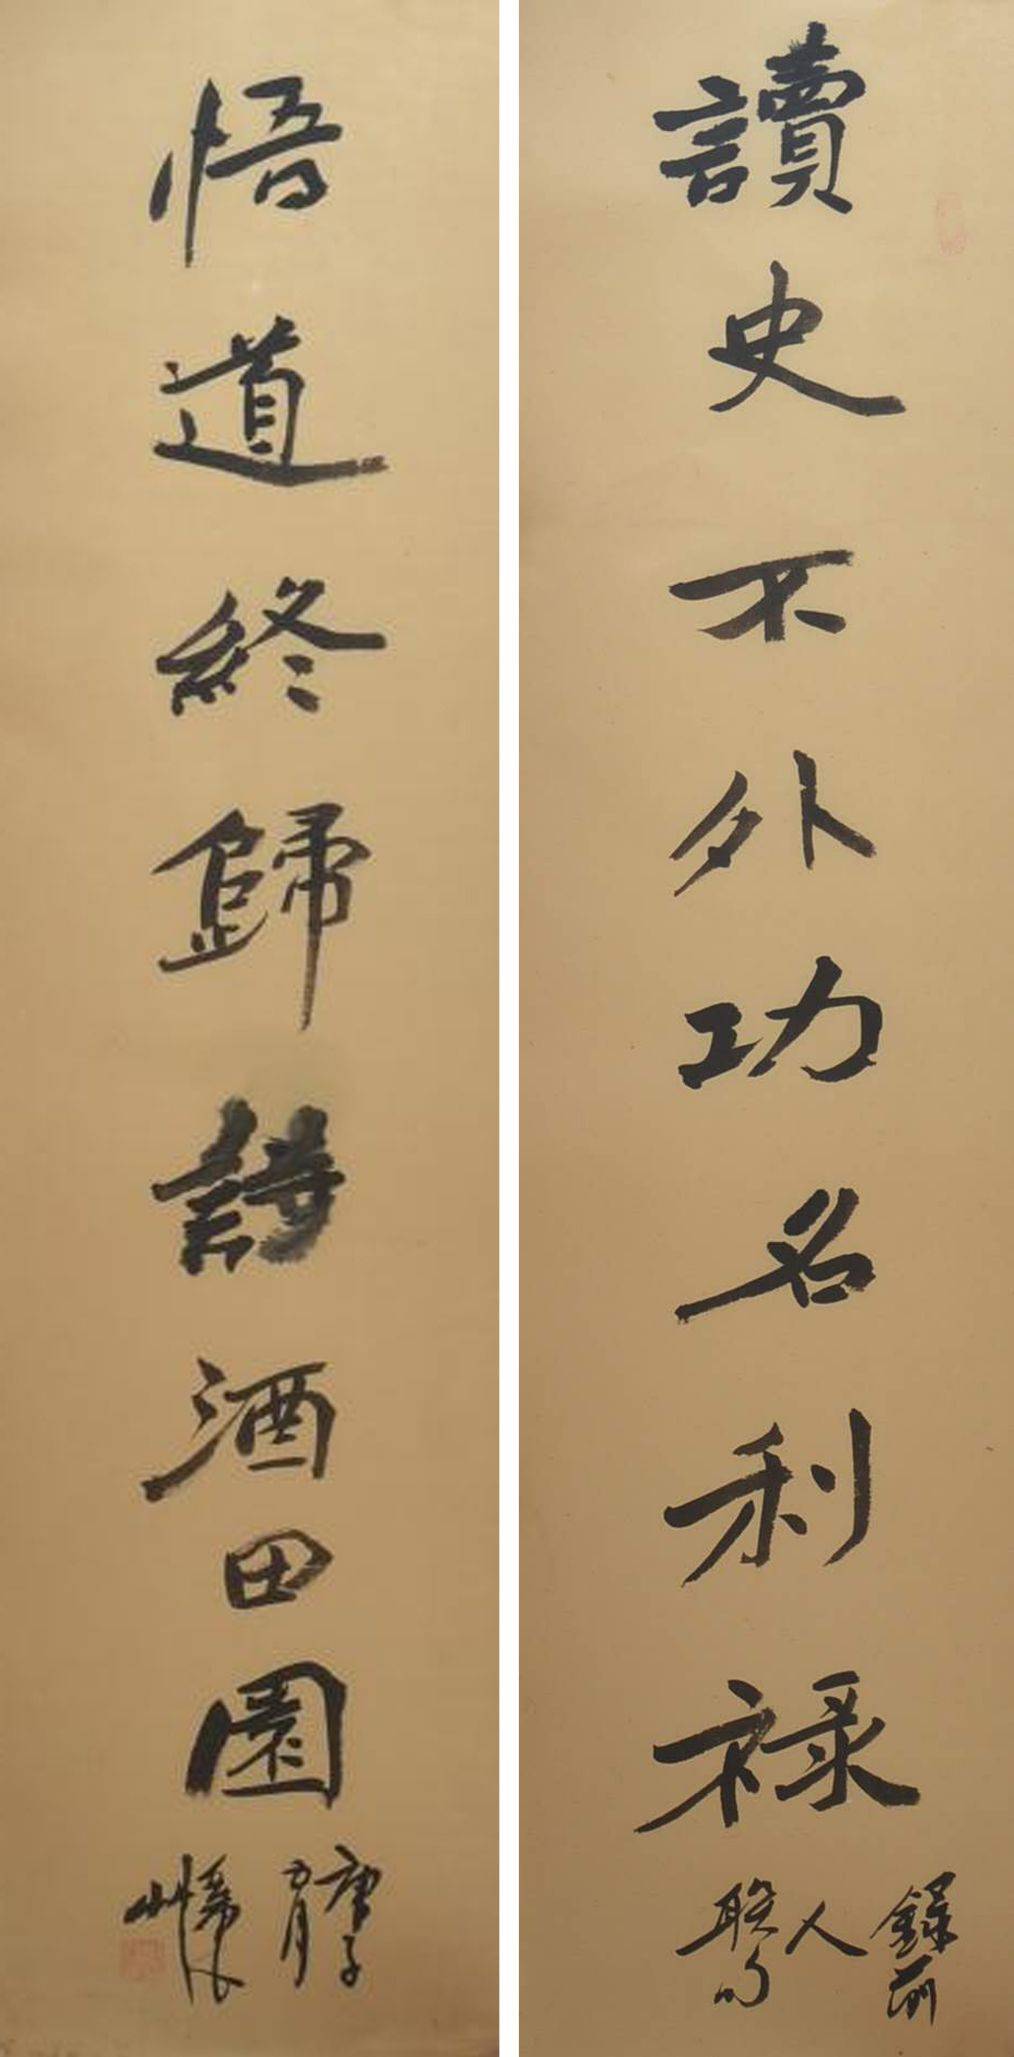 讀史不外功名利祿
錄前
人
聯句
悟道終歸詩酒田園
庚子
五月